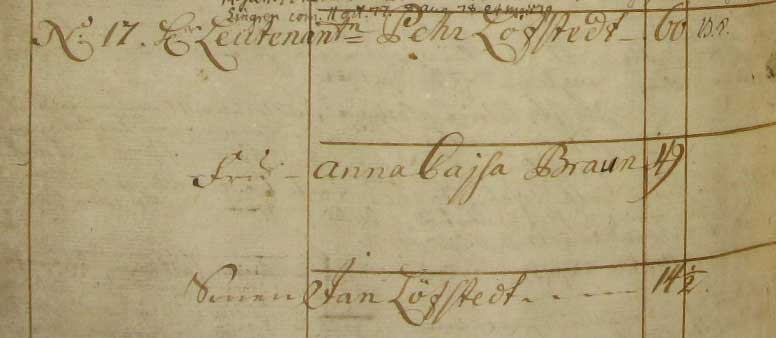 com. 11 oct. 77.
No: 17. Hr Leutenantn Pehr Löfstedt 60
Fru - Anna Cajsa Braun 49
Sonen Jan Löfstedt 14½.